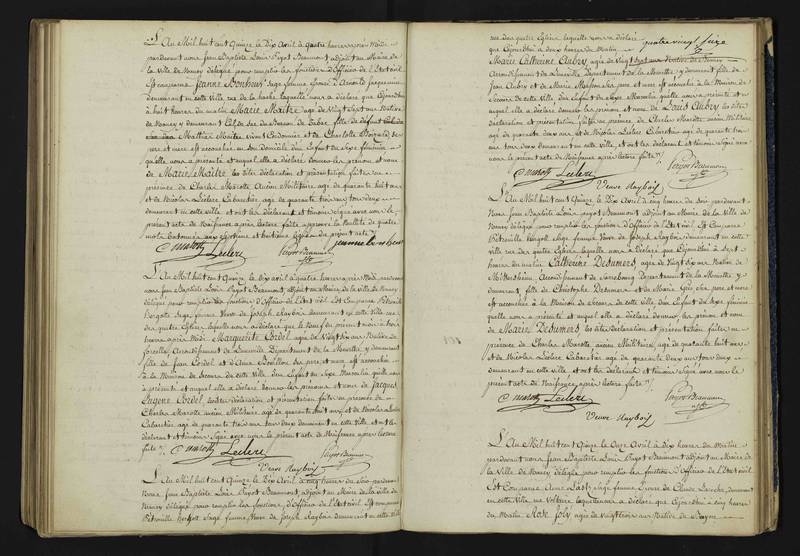 L'An Mil huit cent Quinze le Dix Avril à quatre heures après Midi
pardevant nous Jean Baptiste Louis Puyot Beaumont adjoint au Maire de
la Ville de Nancy délégué pour remplir les fonctions d'Officier de l'Etat civil
Est comparue Jeanne Bonheur Sage femme
demeurant en cette ville rue de la hache laquelle nous a déclaré que Cejourdhui
à huit heures du matin Marie Maitre age de Vingt Sept ans Native
de Nancy y demeurant fille de
Mathieu Maitre vivant Cordonnier et de Charlotte
pere et mere est accouchée en Son domicile d'un Enfant du Sexe féminin
qu'elle nous a présenté et auquel elle a déclaré donner les prénom et nom
de Marie Maitre les dites déclaration et présentation faites en
présence de Charles Marotte Ancien Militaire age de quarante huit ans
et de Nicolas Leclere Cabaretier age de quarante trois ans tous deux
demeurant en cette ville et ont les déclarant et témoins signé avec nous le
présent acte de Naissance après lecture faite approuvé la Nullité de quatre
mots batonnés aux septieme et huitieme lignes du présent acte
C marotte Leclere Puyot Beaumont jeanne bonheur
L'An Mil huit cent Quinze le Dix Avril à quatre heures après Midi pardevant
nous Jean Baptiste Louis Puyot Beaumont, adjoint au Maire de la ville de Nancy
délégué pour remplir les fonctions d'Officier de l'Etat civil Est Comparue Pétronille
Hergott Sage femme Veuve de Joseph Hayboir demeurant en cette ville rue
des quatre Eglises laquelle nous a déclaré que le Neuf du présent mois à huit
heures après Midi Marguerite Cordel agée de Vingt six ans Native de
Arrondissement de Luneville Département de la Meurthe y demeurant
fille de Jean Cordel et d'Anne ses pere et mere est accouchée
à la Maison de Secours de cette Ville d'un Enfant du Sexe Masculin qu'elle nous
a présenté et auquel elle a déclaré donner les prénoms et nom de Jacques
Eugene Cordel les dites déclaration et présentation faites en présence de
Charles Marotte ancien Militaire age de quarante huit ans et de Nicolas Leclere
Cabaretier age de quarante trois ans tous deux demeurant en cette Ville et ont les
déclarant et témoins signé avec nous le présent acte de Naissance après lecture
faite
C marotte Leclere Puyot Beaumont
Veuve Hayboir
L'An Mil huit cent Quinze le Dix Avril à cinq heures du Soir pardevant
Nous Jean Baptiste Louis Puyot Beaumont adjoint au Maire de la ville de
Nancy délégué pour remplir les fonctions d'Officier de l'Etat civil Est comparue
Pétronille hergott Sage femme Veuve de Joseph Hayboir demeurant en cette Ville
rue des quatre Eglises laquelle nous a déclaré
que Cejourdhui à deux heures du Matin quatre vingt seize
Marie Catherine Aubry agée de Vingt Sept ans Native de
Arrondissement de Luneville Département de la Meurthe y demeurant fille de
Jean Aubry et de Marie pere et mere est accouchée à la Maison de
Secours de cette ville d'un Enfant du Sexe Masculin qu'elle nous a présenté et
auquel elle a déclaré donner les prénom et nom de Louis Aubry les dites
déclaration et présentation faites en présence de Charles Marotte ancien Militaire
agé de quarante deux ans et de Nicolas Leclere Cabaretier agé de quarante trois
ans tous deux demeurant en cette ville, et ont les déclarant et témoins Signé avec
nous le présent acte de Naissance après lecture faite
C marotte Leclere Puyot Beaumont
Veuve Hayboir
L'An Mil huit cent Quinze, le Dix Avril à cinq heures du Soir pardevant
Nous Jean Baptiste Louis Puyot Beaumont adjoint au Maire de la Ville de
Nancy délégué pour remplir les fonctions d'Officier de l'Etat civil Est Comparue
Pétronille Hergott Sage femme Veuve de Joseph Hayboir demeurant en cette
ville rue des quatre Eglises laquelle nous a déclaré que Cejourdhui à Sept
heures du matin Catherine Desumers agée de Vingt six ans Native de
Arrondissement de Sarrebourg Département de la Meurthe y
demeurant, fille de Christophe Desumers et de Marie ses pere et mere
est accouchée à la Maison de Secours de cette ville, d'un Enfant du Sexe féminin
qu'elle nous a présenté et auquel elle a déclaré donner les prénom et nom
de Marie Desumers les dites déclaration et présentation faites en
présence de Charles Marotte ancien Militaire, agé de quarante huit ans
et de Nicolas Leclere Cabaretier agé de quarante trois ans tous deux
demeurant en cette ville, et ont les déclarant et témoins Signé avec nous le
présent acte de Naissance, après lecture faite
C marotte Leclere Puyot Beaumont
Veuve Hayboir
L'An Mil huit cent Quinze le Onze Avril à dix heures du Matin
pardevant nous Jean Baptiste Louis Puyot Beaumont adjoint au Maire de
la Ville de Nancy délégué pour remplir les fonctions d'Officier de l'Etat civil
Est Comparue Anne Sage femme Epouse de Claude demeurant
en cette ville rue laquelle nous a déclaré que Cejourdhui à cinq heures
du Matin Rose Joly agée de vingt trois ans Native de Bayon